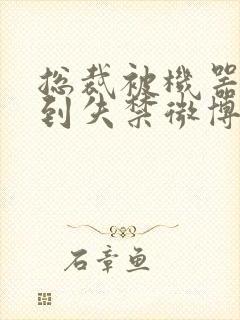 总裁被機器
到失禁微博
石章鱼